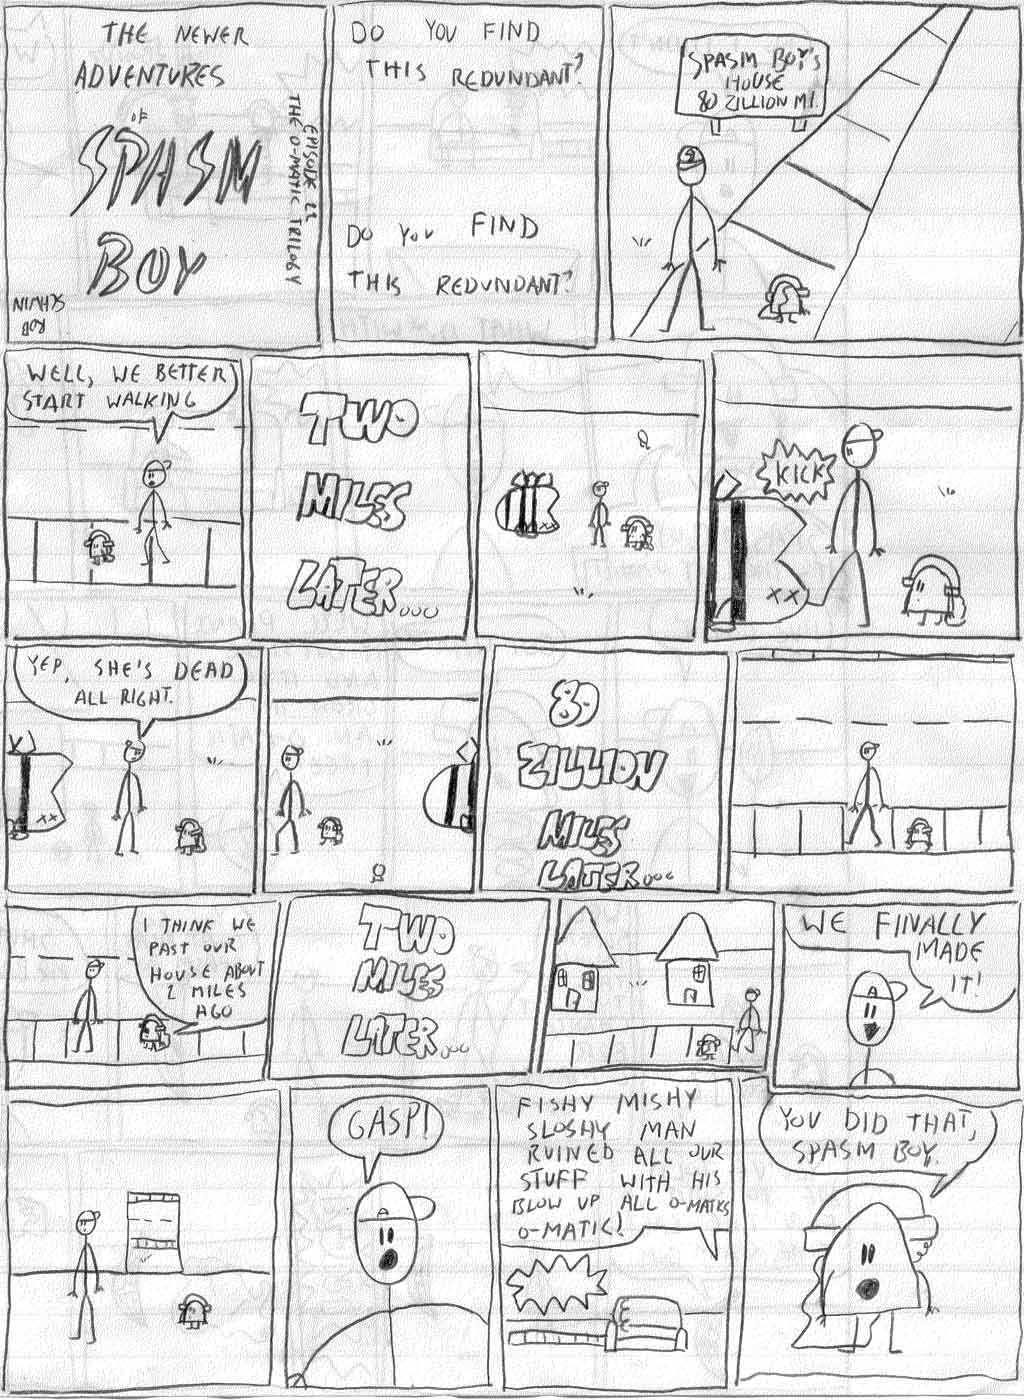 THE NEWER
ADVENTURES
OF
SPASM
BOY
EPISODE 22
THE O-MATIC TRILOGY
ROB
SCHWIN
DO YOU FIND
THIS REDUNDANT?
DO YOU FIND
THIS REDUNDANT?
SPASM BOY'S
HOUSE
80 ZILLION MI.
WELL, WE BETTER
START WALKING
TWO
MILES
LATER...
KICK
YEP, SHE'S DEAD
ALL RIGHT.
80
ZILLION
MILES
LATER...
I THINK WE
PAST OUR
HOUSE ABOUT
2 MILES
AGO
TWO
MILES
LATER...
WE FINALLY
MADE
IT!
GASP!
FISHY MISHY
SLOSHY MAN
RUINED ALL OUR
STUFF WITH HIS
BLOW UP ALL O-MATICS
O-MATIC!
YOU DID THAT,
SPASM BOY.